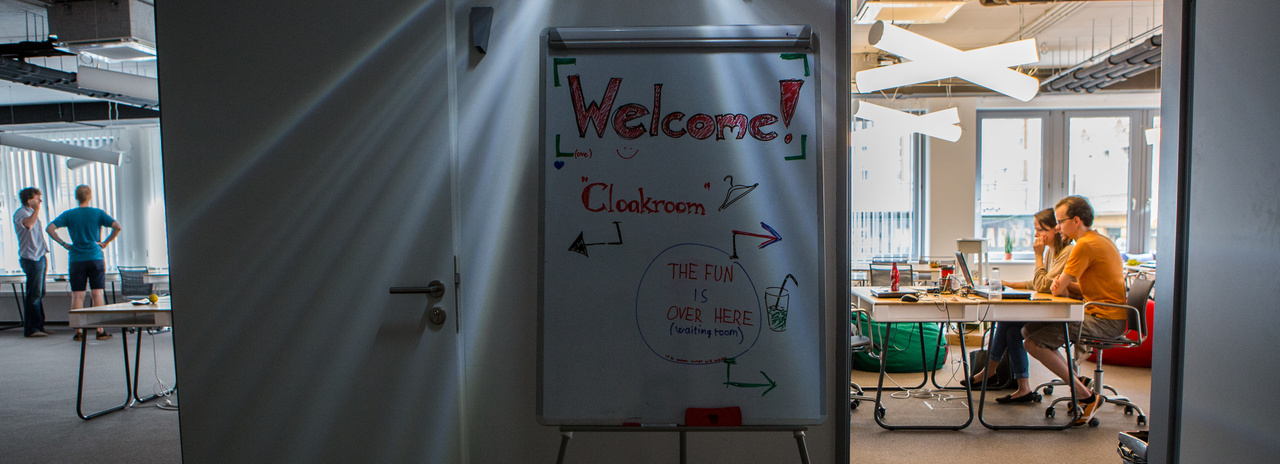 Welcome!
(ove)
"Cloakroom"
THE FUN
IS
OVER HERE
(waiting room)